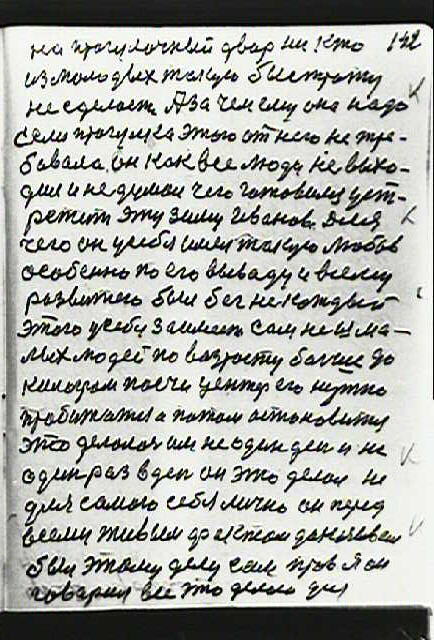 на прогулочный двор ни кто 142
из молодых такую быстроту
не сделает А за чем ему она надо
если прогулка этого от него не тре-
бовала, он как все люди не выхо-
дил и не думал чего готовился уст-
ретить эту зиму Иванов. Для
чего он у себя имел такую любов
особенно по его выводу и всему
развитию был бег не каждый
этого у себя заимеет сам не ма-
лых людей по возрасту больше до
килограм почти центер его нужно
пробижатся а потом остоновится
это делалося им не один ден и не
один раз в ден он это делал не
для самого себя лично он перед
всеми живым фактом доказывал
был этому делу сам прав Я он
говарил все это делаю для